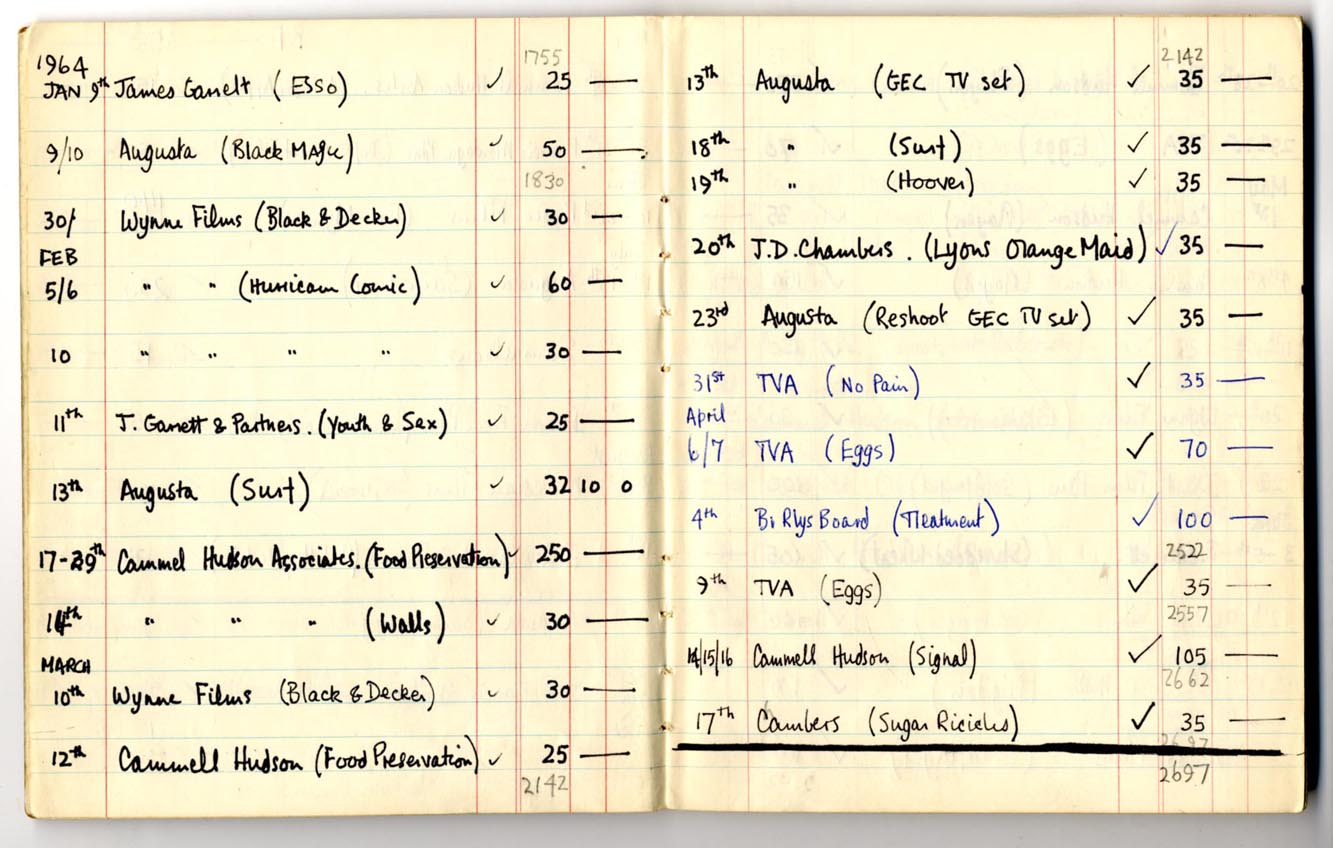 1755
1964
JAN 9th James Garrett (ESSO) ✓ 25 —
9/10 Augusta (Black Magic) ✓ 50 —
1830
30/ Wynne Films (Black & Decker) ✓ 30 —
FEB
5/6 " " (Hurricane Comic) ✓ 60 —
10 " " " " ✓ 30 —
11th J. Garrett & Partners. (Youth & Sex) ✓ 25 —
13th Augusta (Surf) ✓ 32 10 0
17-29th Cammel Hudson Associates. (Food Preservation) ✓ 250 —
14th " " " (Walls) ✓ 30 —
MARCH
10th Wynne Films (Black & Decker) ✓ 30 —
12th Cammell Hudson (Food Preservation) ✓ 25 —
2142
2142
13th Augusta (GEC TV set) ✓ 35 —
18th " (Surf) ✓ 35 —
19th " (Hoover) ✓ 35 —
20th J.D. Chambers. (Lyons Orange Maid) ✓ 35 —
23rd Augusta (Reshoot GEC TV set) ✓ 35 —
31st TVA (No Pain) ✓ 35 —
April
6/7 TVA (Eggs) ✓ 70 —
4th Br Rlys Board (Treatment) ✓ 100 —
2522
9th TVA (Eggs) ✓ 35 —
2557
14/15/16 Cammell Hudson (Signal) ✓ 105 —
2662
17th Cambers (Sugar Ricicles) ✓ 35 —
2697
2697